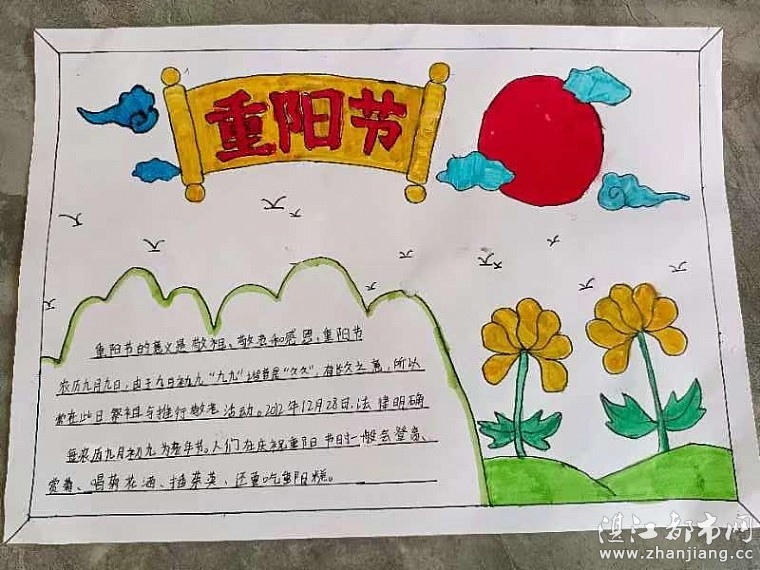 重阳节
重阳节的意义是敬祖、敬老和感恩。重阳节
农历九月九日,由于九月初九“九九”谐音是“久久”,有长久之意,所以
常在此日祭祖与推行敬老活动。2012年12月28日,法律明确
每农历九月初九为老年节。人们在庆祝重阳节时一般会登高、
赏菊、喝菊花酒、插茱萸、还要吃重阳糕。
湛江都市网
www.zhanjiang.cc